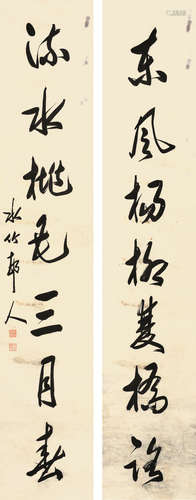 东风杨柳双桥路
流水桃花三月春
水竹邨人